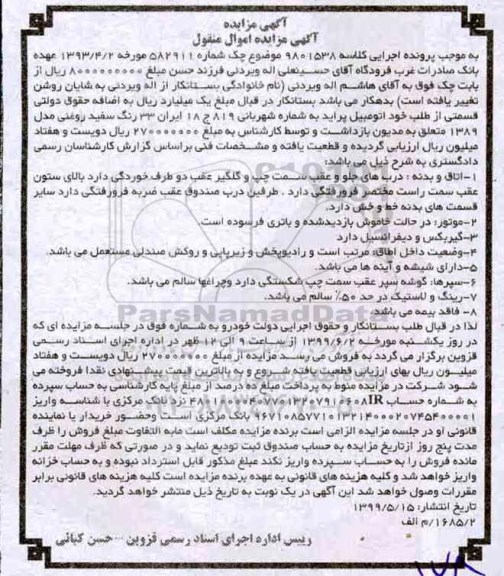 آگهی مزایده
آگهی مزایده اموال منقول
به موجب پرونده اجرایی کلاسه ۹۸۰۱۵۳۸ موضوع چک شماره ۵۸۲۹۱۱ مورخه ۱۳۹۳/۴/۲ عهده
بانک صادرات غرب فرودگاه آقای حسینعلی اله ویردنی فرزند حسن مبلغ ۸۰۰۰۰۰۰۰۰۰ ریال از
بابت چک فوق به آقای هاشم اله ویردنی (نام خانوادگی بستانکار از اله ویردنی به شایان روشن
تغییر یافته است) بدهکار می باشد بستانکار در قبال مبلغ یک میلیارد ریال به اضافه حقوق دولتی
قسمتی از طلب خود اتومبیل پراید به شماره شهربانی ۸۱۹ ج ۱۸ ایران ۳۳ رنگ سفید روغنی مدل
۱۳۸۹ متعلق به مدیون بازداشت و توسط کارشناس به مبلغ ۲۷۰۰۰۰۰۰۰ ریال دویست و هفتاد
میلیون ریال ارزیابی گردیده و قطعیت یافته و مشخصات فنی براساس گزارش کارشناسان رسمی
دادگستری به شرح ذیل می باشد:
۱-اتاق و بدنه : درب های جلو و عقب سمت چپ و گلگیر عقب دو طرف خوردگی دارد بالای ستون
عقب سمت راست مختصر فرورفتگی دارد . طرفین درب صندوق عقب ضربه فرورفتگی دارد سایر
قسمت های بدنه خط و خش دارد.
۲-موتور: در حالت خاموش بازدیدشده و باتری فرسوده است.
۳-گیربکس و دیفرانسیل دارد
۴-وضعیت داخل اطاق: مرتب است و رادیوپخش و زیرپایی و روکش صندلی مستعمل می باشد.
۵-دارای شیشه و آینه ها می باشد.
۶-سپرها: گوشه سپر عقب سمت چپ شکستگی دارد وچراغها سالم می باشد.
۷-رینگ و لاستیک در حد ۵۰٪ سالم می باشد.
۸- فاقد بیمه می باشد.
ParsNamadData
لذا در قبال طلب بستانکار و حقوق اجرایی دولت خودرو به شماره فوق در جلسه مزایده ای که
در روز یکشنبه مورخه ۱۳۹۹/۶/۲ از ساعت ۹ الی ۱۲ ظهر در اداره اجرای اسناد رسمی
قزوین برگزار می گردد به فروش می رسد مزایده از مبلغ ۲۷۰۰۰۰۰۰۰ ریال دویست و هفتاد
میلیون ریال بهای ارزیابی قطعیت یافته شروع و به بالاترین قیمت پیشنهادی نقدا فروخته می
شود شرکت در مزایده منوط به پرداخت مبلغ ده درصد از مبلغ پایه کارشناسی به حساب سپرده
به شماره حساب IR نزد بانک مرکزی با شناسه واریز
بانک مرکزی است وحضور خریدار یا نماینده
قانونی او در جلسه مزایده الزامی است برنده مزایده مکلف است مابه التفاوت مبلغ فروش را ظرف
مدت پنج روز ازتاریخ مزایده به حساب صندوق ثبت تودیع نماید و در صورتی که ظرف مهلت مقرر
مانده فروش را به حساب سپرده واریز نکند مبلغ مذکور قابل استرداد نبوده و به حساب خزانه
واریز خواهد شد و کلیه هزینه های قانونی به عهده برنده مزایده است کلیه هزینه های قانونی برابر
مقررات وصول خواهد شد این آگهی در یک نوبت به تاریخ ذیل منتشر خواهد گردید.
تاریخ انتشار: ۱۳۹۹/۵/۱۵
۱۶۸۵/۲/م الف
رییس اداره اجرای اسناد رسمی قزوین -حسن کیانی